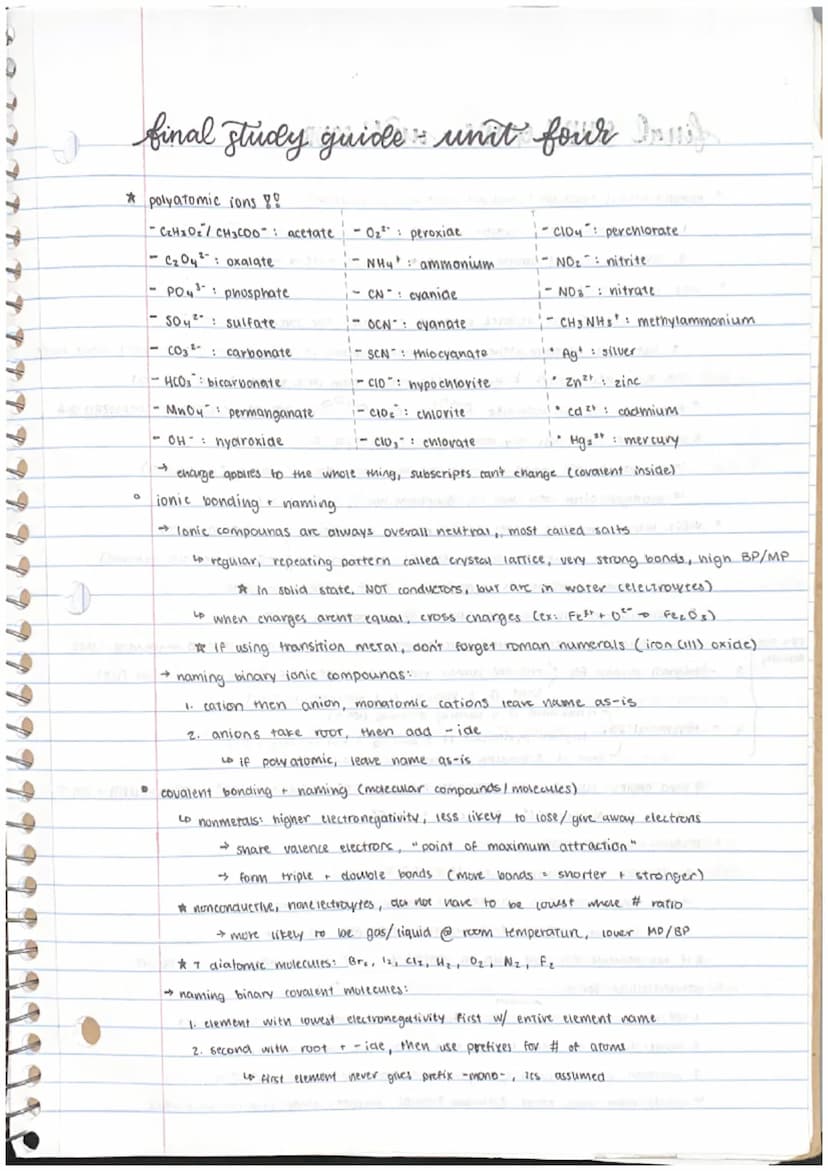 final study guide - unit four
* polyatomic ions !!
- C₂H₃O₂⁻/ CH₃COO⁻ : acetate
- C₂O₄²⁻ : oxalate
- PO₄³⁻ : phosphate
- SO₄²⁻ : sulfate
- CO₃²⁻ : carbonate
- HCO₃⁻ : bicarbonate
- MnO₄⁻ : permanganate
- OH⁻ : hydroxide
- O₂²⁻ : peroxide
- NH₄⁺ : ammonium
- CN⁻ : cyanide
- OCN⁻ : cyanate
- SCN⁻ : thiocyanate
- ClO⁻ : hypochlorite
- ClO₂⁻ : chlorite
- ClO₃⁻ : chlorate
- ClO₄⁻ : perchlorate
- NO₂⁻ : nitrite
- NO₃⁻ : nitrate
- CH₃NH₃⁺ : methylammonium
• Ag⁺ : silver
• Zn²⁺ : zinc
• Cd²⁺ : cadmium
• Hg₂²⁺ : mercury
→ charge applies to the whole thing, subscripts can't change (covalent inside)
◦ ionic bonding + naming
→ ionic compounds are always overall neutral, most called salts
↳ regular, repeating pattern called crystal lattice, very strong bonds, high BP/MP
* in solid state, NOT conductors, but are in water (electrolytes)
↳ when charges arent equal, cross charges (ex: Fe³⁺ + O²⁻ → Fe₂O₃)
* if using transition metal, don't forget roman numerals (iron (III) oxide)
→ naming binary ionic compounds:
1. cation then anion, monatomic cations leave name as-is
2. anions take root, then add -ide
↳ if polyatomic, leave name as-is
• covalent bonding + naming (molecular compounds / molecules)
↳ nonmetals: higher electronegativity, less likely to lose/ give away electrons
→ share valence electrons, "point of maximum attraction"
→ form triple + double bonds (more bonds = shorter + stronger)
* nonconductive, nonelectrolytes, do not have to be lowest whole # ratio
→ more likely to be gas/liquid @ room temperature, lower MP/BP
* 7 diatomic molecules: Br₂, I₂, Cl₂, H₂, O₂, N₂, F₂
→ naming binary covalent molecules:
1. element with lowest electronegativity first w/ entire element name
2. second with root + -ide, then use prefixes for # of atoms
↳ first element never gives prefix -mono-, its assumed